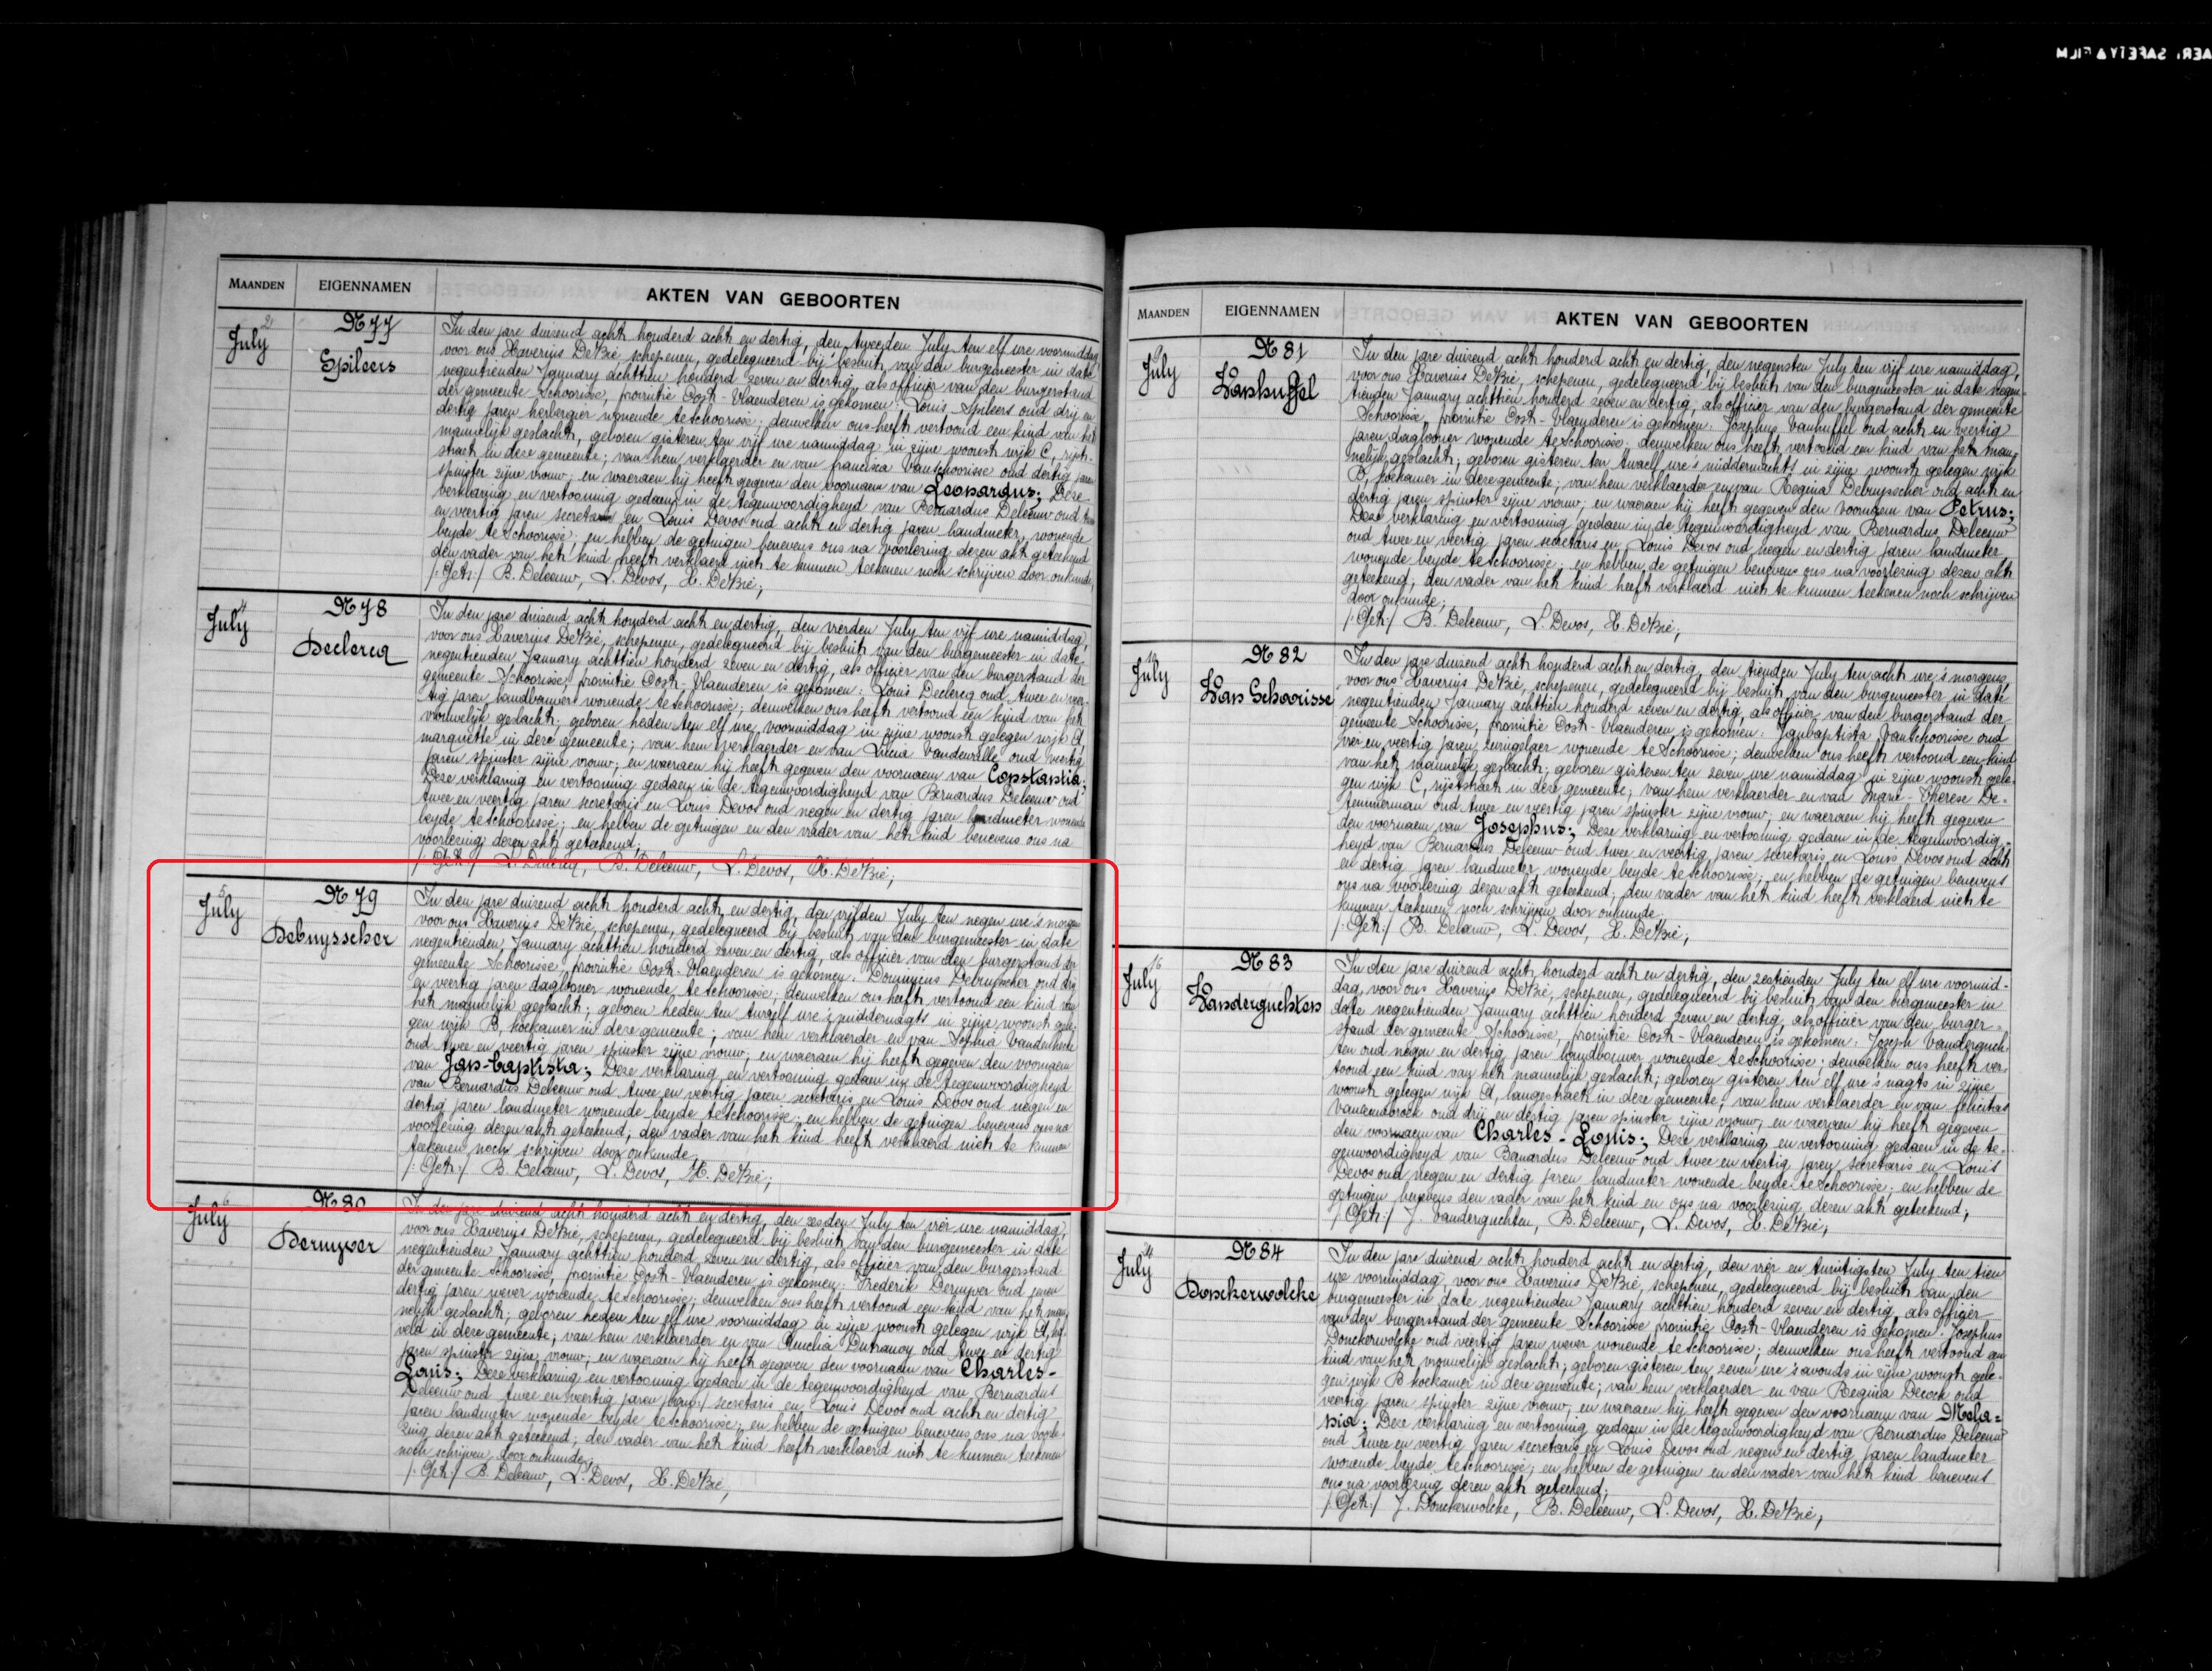 MAANDEN
EIGENNAMEN
AKTEN VAN GEBOORTEN
July 2
N 77
Spileers
In den jare duizend acht honderd acht en dertig, den tweeden July ten elf ure voormiddag,
voor ons Xaverius DeBié, schepenen, gedelegueerd bij besluit van den burgemeester in date
negentienden January achttien honderd zeven en dertig, als officier van den burgerstand
der gemeente Schoorisse, provintie Oost-Vlaenderen is gekomen: Louis Spileers oud drij en
dertig jaren herbergier wonende te Schoorisse; denwelken ons heeft vertoond een kind van het
mannelijk geslacht, geboren gisteren ten vijf ure namiddag in zijne woonst wijk C, rijst-
straet in deze gemeente; van hem verklaerder en van francisca Vanschoorisse oud dertig jaren
spinster zijne vrouw; en waeraen hij heeft gegeven den voornaem van Leonardus; Deze
verklaring en vertooning gedaen in de tegenwoordigheyd van Bernardus Deleeuw oud twee
en veertig jaren secretaris en Louis Devos oud acht en dertig jaren landmeter, wonende
beyde te Schoorisse; en hebben de getuigen benevens ons na voorlezing dezen akt geteekend
den vader van het kind heeft verklaerd niet te kunnen teekenen noch schrijven door onkunde,
/:Get:/ B. Deleeuw, L. Devos, X. DeBié;
July 4
N 78
Declercq
In den jare duizend acht honderd acht en dertig, den vierden July ten vijf ure namiddag,
voor ons Xaverius DeBié, schepenen, gedelegueerd bij besluit van den burgemeester in date
negentienden January achttien honderd zeven en dertig, als officier van den burgerstand der
gemeente Schoorisse, provintie Oost-Vlaenderen is gekomen: Louis Declercq oud twee en veer-
tig jaren landbouwer wonende te Schoorisse; denwelken ons heeft vertoond een kind van het
vrouwelijk geslacht; geboren heden ten elf ure voormiddag in zijne woonst gelegen wijk A,
marquette in deze gemeente; van hem verklaerder en van Lucia Vandewalle oud veertig
jaren spinster zijne vrouw; en waeraen hij heeft gegeven den voornaem van Constantia;
Deze verklaring en vertooning gedaen in de tegenwoordigheyd van Bernardus Deleeuw oud
twee en veertig jaren secretaris en Louis Devos oud negen en dertig jaren landmeter wonende
beyde te Schoorisse; en hebben de getuigen en den vader van het kind benevens ons na
voorlezing dezen akt geteekend;
/:Get:/ L. Declercq, B. Deleeuw, L. Devos, X. DeBié;
July 5
N 79
Debuysscher
In den jare duizend acht honderd acht en dertig, den vijfden July ten negen ure 's morgens
voor ons Xaverius DeBié, schepenen, gedelegueerd bij besluit van den burgemeester in date
negentienden January achttien honderd zeven en dertig, als officier van den burgerstand der
gemeente Schoorisse, provintie Oost-Vlaenderen is gekomen: Dominicus Debuysscher oud drij
en veertig jaren daglooner wonende te Schoorisse; denwelken ons heeft vertoond een kind van
het mannelijk geslacht; geboren heden ten twaelf ure 's middernagts in zijne woonst gele-
gen wijk B, hoekamer in deze gemeente; van hem verklaerder en van Sophia
oud twee en veertig jaren spinster zijne vrouw; en waeraen hij heeft gegeven den voornaem
van Jan-baptista; Deze verklaring en vertooning gedaen in de tegenwoordigheyd
van Bernardus Deleeuw oud twee en veertig jaren secretaris en Louis Devos oud negen en
dertig jaren landmeter wonende beyde te Schoorisse; en hebben de getuigen benevens ons na
voorlezing dezen akt geteekend; den vader van het kind heeft verklaerd niet te kunnen
teekenen noch schrijven door onkunde,
/:Get:/ B. Deleeuw, L. Devos, X. DeBié;
July 6
N 80
Deruyver
In den jare duizend acht honderd acht en dertig, den zesden July ten vier ure namiddag,
voor ons Xaverius DeBié, schepenen, gedelegueerd bij besluit van den burgemeester in date
negentienden January achttien honderd zeven en dertig, als officier van den burgerstand
der gemeente Schoorisse, provintie Oost-Vlaenderen is gekomen: Frederik Deruyver oud
dertig jaren wever wonende te Schoorisse; denwelken ons heeft vertoond een kind van het man-
nelijk geslacht; geboren heden ten elf ure voormiddag in zijne woonst gelegen wijk A,
veld in deze gemeente; van hem verklaerder en van Amelia Dutranoy oud twee en dertig
jaren spinster zijne vrouw; en waeraen hij heeft gegeven den voornaem van Charles-
Louis; Deze verklaring en vertooning gedaen in de tegenwoordigheyd van Bernardus
Deleeuw oud twee en veertig jaren secretaris en Louis Devos oud acht en dertig
jaren landmeter wonende beyde te Schoorisse; en hebben de getuigen benevens ons na voorle-
zing dezen akt geteekend; den vader van het kind heeft verklaerd niet te kunnen teekenen
noch schrijven door onkunde,
/:Get:/ B. Deleeuw, L. Devos, X. DeBié,
MAANDEN
EIGENNAMEN
AKTEN VAN GEBOORTEN
July 9
N 81
Vanhuffel
In den jare duizend acht honderd acht en dertig, den negensten July ten vijf ure namiddag,
voor ons Xaverius DeBié, schepenen, gedelegueerd bij besluit van den burgemeester in date negen-
tienden January achttien honderd zeven en dertig, als officier van den burgerstand der gemeente
Schoorisse, provintie Oost-Vlaenderen is gekomen: Josephus Vanhuffel oud acht en veertig
jaren daglooner wonende te Schoorisse; denwelken ons heeft vertoond een kind van het man-
nelijk geslacht; geboren gisteren ten twaelf ure 's middernachts in zijne woonst gelegen wijk
B, hoekamer in deze gemeente; van hem verklaerder en van Regina Debuysscher oud acht en
dertig jaren spinster zijne vrouw; en waeraen hij heeft gegeven den voornaem van Petrus;
Deze verklaring en vertooning gedaen in de tegenwoordigheyd van Bernardus Deleeuw
oud twee en veertig jaren secretaris en Louis Devos oud negen en dertig jaren landmeter
wonende beyde te Schoorisse; en hebben de getuigen benevens ons na voorlezing dezen akt
geteekend; den vader van het kind heeft verklaerd niet te kunnen teekenen noch schrijven
door onkunde;
/:Get:/ B. Deleeuw, L. Devos, X. DeBié;
July 10
N 82
Van Schoorisse
In den jare duizend acht honderd acht en dertig, den tienden July ten acht ure 's morgens,
voor ons Xaverius DeBié, schepenen, gedelegueerd bij besluit van den burgemeester in date
negentienden January achttien honderd zeven en dertig, als officier van den burgerstand der
gemeente Schoorisse, provintie Oost-Vlaenderen is gekomen: Janbaptista Vanschoorisse oud
vier en veertig jaren wonende te Schoorisse; denwelken ons heeft vertoond een kind
van het mannelijk geslacht; geboren gisteren ten zeven ure namiddag in zijne woonst gele-
gen wijk C, rijststraet in deze gemeente; van hem verklaerder en van Marie-Therese De-
temmerman oud twee en veertig jaren spinster zijne vrouw; en waeraen hij heeft gegeven
den voornaem van Josephus; Deze verklaring en vertooning gedaen in de tegenwoordig-
heyd van Bernardus Deleeuw oud twee en veertig jaren secretaris en Louis Devos oud acht
en dertig jaren landmeter wonende beyde te Schoorisse; en hebben de getuigen benevens
ons na voorlezing dezen akt geteekend; den vader van het kind heeft verklaerd niet te
kunnen teekenen noch schrijven door onkunde.
/:Get:/ B. Deleeuw, L. Devos, X. DeBié;
July 16
N 83
Vanderguchten
In den jare duizend acht honderd acht en dertig, den zestienden July ten elf ure voormid-
dag, voor ons Xaverius DeBié, schepenen, gedelegueerd bij besluit van den burgemeester in
date negentienden January achttien honderd zeven en dertig, als officier van den burger-
stand der gemeente Schoorisse, provintie Oost-Vlaenderen is gekomen: Joseph Vanderguch-
ten oud negen en dertig jaren landbouwer wonende te Schoorisse; denwelken ons heeft ver-
toond een kind van het mannelijk geslacht; geboren gisteren ten elf ure 's nagts in zijne
woonst gelegen wijk A, langestraet in deze gemeente; van hem verklaerder en van felicitas
oud drij en dertig jaren spinster zijne vrouw; en waeraen hij heeft gegeven
den voornaem van Charles-Louis; Deze verklaring en vertooning gedaen in de te-
genwoordigheyd van Bernardus Deleeuw oud twee en veertig jaren secretaris en Louis
Devos oud negen en dertig jaren landmeter wonende beyde te Schoorisse; en hebben de
getuigen benevens den vader van het kind en ons na voorlezing dezen akt geteekend;
/:Get:/ J. Vanderguchten, B. Deleeuw, L. Devos, X. DeBié;
July 24
N 84
Donckerwolcke
In den jare duizend acht honderd acht en dertig, den vier en twintigsten July ten tien
ure voormiddag, voor ons Xaverius DeBié, schepenen, gedelegueerd bij besluit van den
burgemeester in date negentienden January achttien honderd zeven en dertig, als officier
van den burgerstand der gemeente Schoorisse provintie Oost-Vlaenderen is gekomen: Josephus
Donckerwolcke oud veertig jaren wever wonende te Schoorisse; denwelken ons heeft vertoond een
kind van het vrouwelijk geslacht; geboren gisteren ten zeven ure 's avonds in zijne woonst gele-
gen wijk B hoekamer in deze gemeente; van hem verklaerder en van Regina Decock oud
veertig jaren spinster zijne vrouw; en waeraen hij heeft gegeven den voornaem van Mela=
nia; Deze verklaring en vertooning gedaen in de tegenwoordigheyd van Bernardus Deleeuw
oud twee en veertig jaren secretaris en Louis Devos oud negen en dertig jaren landmeter
wonende beyde te Schoorisse; en hebben de getuigen en den vader van het kind benevens
ons na voorlezing dezen akt geteekend;
/:Get:/ J. Donckerwolcke, B. Deleeuw, L. Devos, X. DeBié;